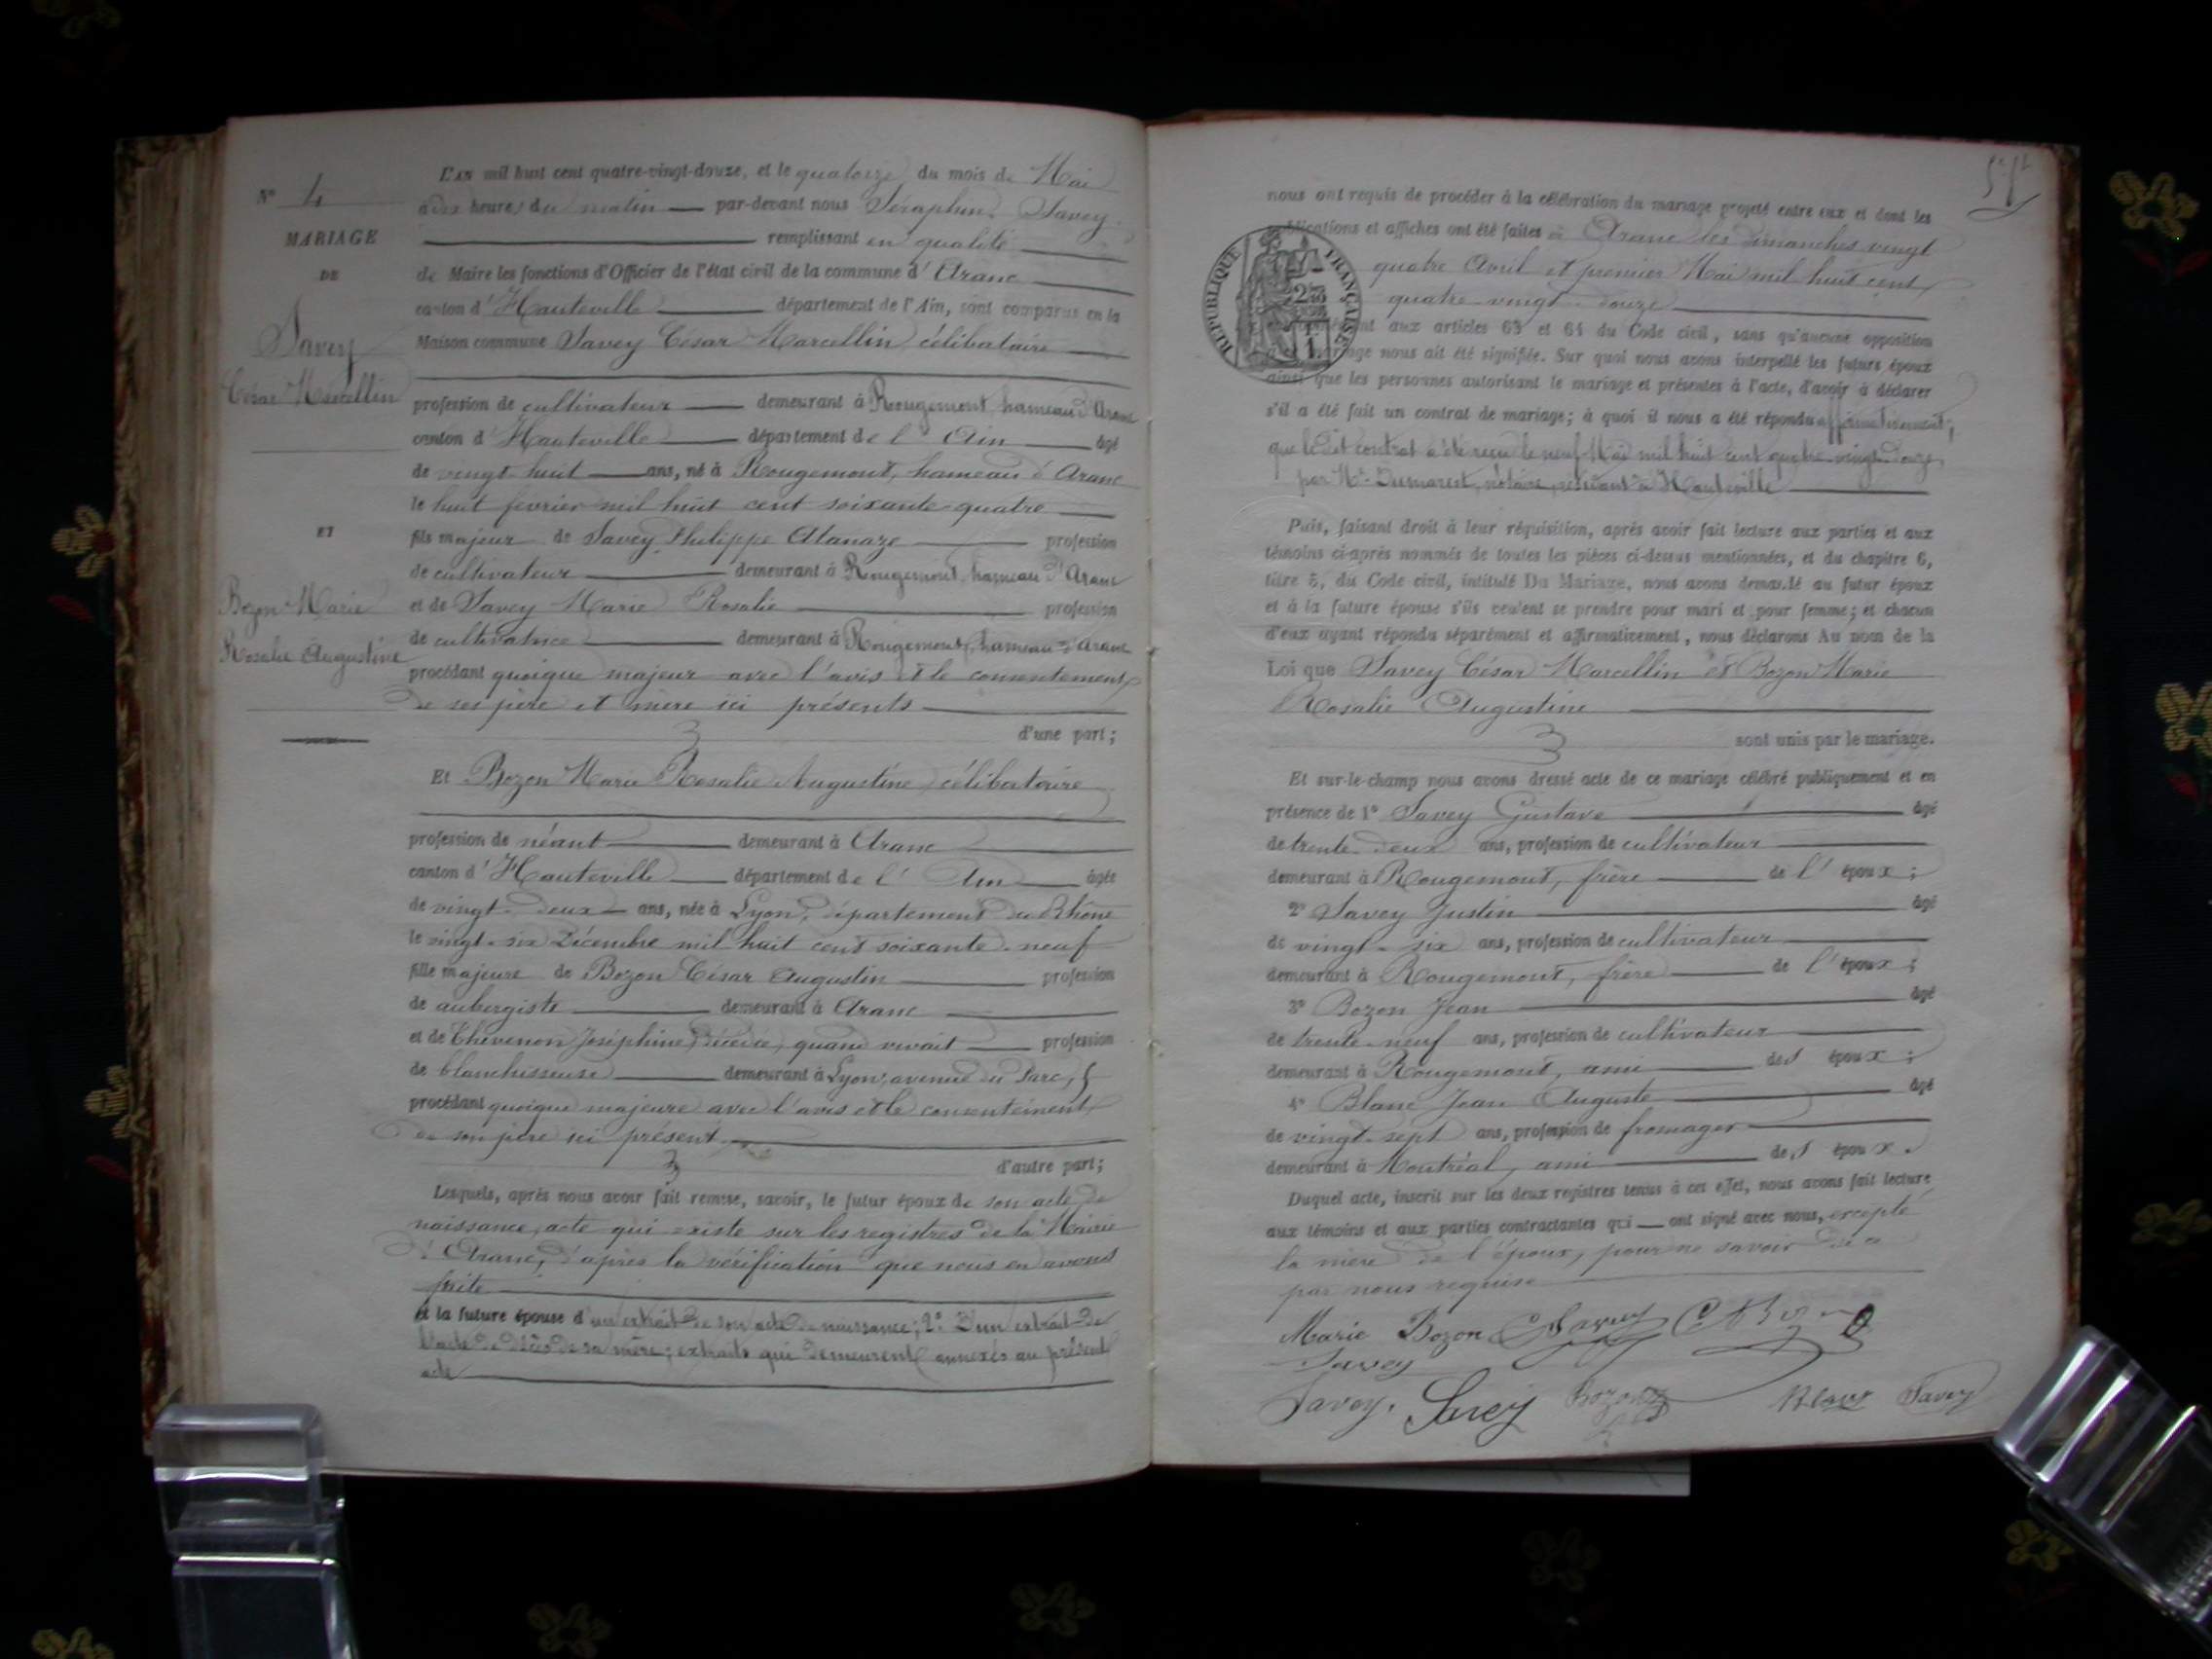 N° 4
MARIAGE
DE
Savey
César Marcellin
ET
Bozon Marie
Rosalie Augustine
L'AN mil huit cent quatre-vingt-douze, et le quatorze du mois de Mai
à dix heures du matin par-devant nous Séraphin Savey
remplissant en qualité
de Maire les fonctions d'Officier de l'état civil de la commune d'Aranc
canton d'Hauteville département de l'Ain, sont comparus en la
Maison commune Savey César Marcellin célibataire
profession de cultivateur demeurant à Rougemont, hameau d'Aranc
canton d'Hauteville département de l'Ain âgé
de vingt-huit ans, né à Rougemont, hameau d'Aranc
le huit février mil huit cent soixante-quatre
fils majeur de Savey Philippe Atanaze profession
de cultivateur demeurant à Rougemont, hameau d'Aranc
et de Savey Marie Rosalie profession
de cultivatrice demeurant à Rougemont, hameau d'Aranc
procédant quoique majeur avec l'avis et le consentement
de ses père et mère ici présents
d'une part;
Et Bozon Marie Rosalie Augustine célibataire
profession de néant demeurant à Aranc
canton d'Hauteville département de l'Ain âgée
de vingt-deux ans, née à Lyon, département du Rhône
le vingt-six Décembre mil huit cent soixante-neuf
fille majeure de Bozon César Augustin profession
de aubergiste demeurant à Aranc
et de Thévenon Joséphine, décédée, quand vivait profession
de blanchisseuse demeurant à Lyon, avenue du Parc, 5
procédant quoique majeure avec l'avis et le consentement
de son père ici présent
d'autre part;
Lesquels, après nous avoir fait remise, savoir, le futur époux de son acte de
naissance, acte qui existe sur les registres de la Mairie
d'Aranc, d'après la vérification que nous en avons
faite
et la future épouse d'un extrait de son acte de naissance; 2° D'un extrait de
l'acte de décès de sa mère; extraits qui demeurent annexés au présent
acte
nous ont requis de procéder à la célébration du mariage projeté entre eux et dont les
publications et affiches ont été faites à Aranc les dimanches vingt
quatre Avril et premier Mai mil huit cent
quatre-vingt-douze
RÉPUBLIQUE FRANÇAISE
aux articles 63 et 64 du Code civil, sans qu'aucune opposition
à ce mariage nous ait été signifiée. Sur quoi nous avons interpellé les futurs époux
ainsi que les personnes autorisant le mariage et présentes à l'acte, d'avoir à déclarer
s'il a été fait un contrat de mariage; à quoi il nous a été répondu affirmativement,
que le dit contrat a été reçu le neuf Mai mil huit cent quatre-vingt-douze,
par Me Dumarest, notaire, résidant à Hauteville
Puis, faisant droit à leur réquisition, après avoir fait lecture aux parties et aux
témoins ci-après nommés de toutes les pièces ci-dessus mentionnées, et du chapitre 6,
titre 5, du Code civil, intitulé Du Mariage, nous avons demandé au futur époux
et à la future épouse s'ils veulent se prendre pour mari et pour femme; et chacun
d'eux ayant répondu séparément et affirmativement, nous déclarons Au nom de la
Loi que Savey César Marcellin et Bozon Marie
Rosalie Augustine
sont unis par le mariage.
Et sur-le-champ nous avons dressé acte de ce mariage célébré publiquement et en
présence de 1° Savey Gustave âgé
de trente-deux ans, profession de cultivateur
demeurant à Rougemont, frère de l'époux;
2° Savey Justin âgé
de vingt-six ans, profession de cultivateur
demeurant à Rougemont, frère de l'époux;
3° Bozon Jean âgé
de trente-neuf ans, profession de cultivateur
demeurant à Rougemont, ami des époux;
4° Blanc Jean Auguste âgé
de vingt-sept ans, profession de fromager
demeurant à Montréal, ami des époux.
Duquel acte, inscrit sur les deux registres tenus à cet effet, nous avons fait lecture
aux témoins et aux parties contractantes qui ont signé avec nous, excepté
la mère de l'époux, pour ne savoir de ce
par nous requise
Marie Bozon C Savey C A Bozon
Savey
Savey. Savey Bozon Blanc Savey